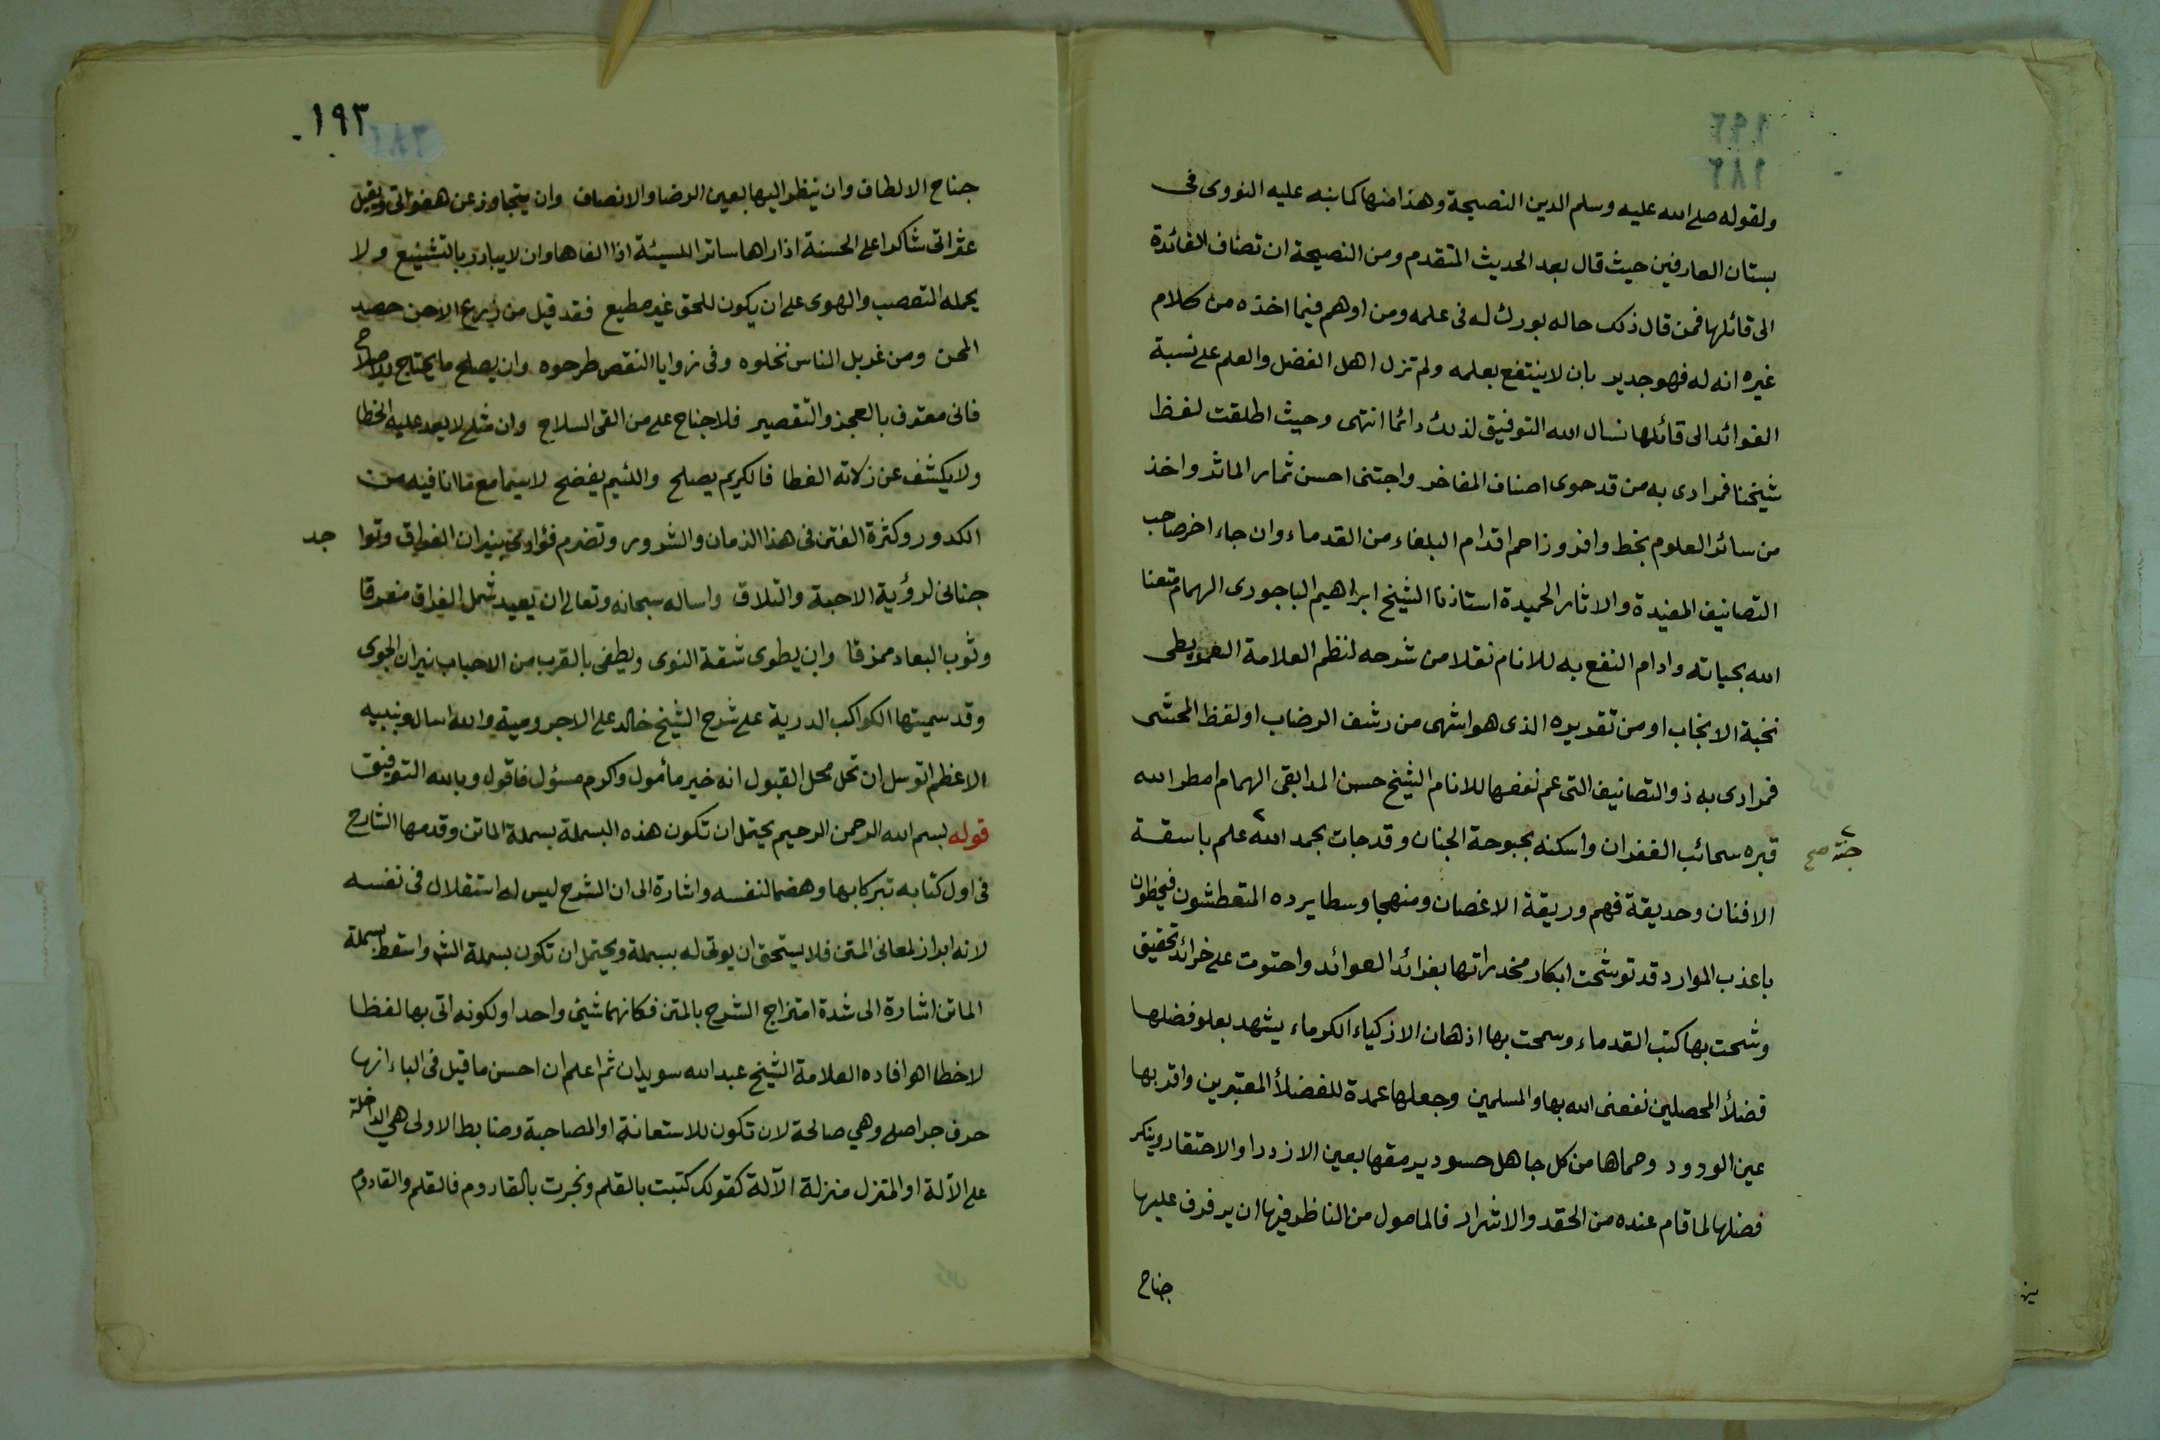 ولقوله صلے الله عليه وسلم الدين النصيحة وهذا منها كما نبه عليه النووى فى
بستان العارفين حيث قال بعد الحديث المتقدم ومن النصيحة ان تضاف الفائدة
الى قائلها فمن قال ذلك حاله بورك له فى علمه ومن اوهم فيما اخذه من كلام
غيره انه له فهو جدير بان لا ينتفع بعلمه ولم تزل اهل الفضل والعلم على نسبة
الفوائد الى قائلها نسال الله التوفيق لذلك دائما انتهى وحيث اطلقت لفظ
شيخنا فمرادى به من قد حوى اصناف المفاخر واجتنى احسن ثمار الماثر واخذ
من سائر العلوم بخط وافر وزاحم اقدام البلغاء من القدماء وان جاء اخر صاحب
التصانيف المفيدة والاثار الحميدة استاذنا الشيخ ابراهيم الباجورى الهمام متعنا
الله بحياته وادام النفع به للانام نقلا من شرحه لنظم العلامة العمريطى
نخبة الانجاب او من تقريره الذى هو اشهى من رشف الرضاب او لفظ المحشى
فمرادى به ذو التصانيف التى عم نفعها للانام الشيخ حسن المدابغى الهمام امطر الله
قبره سحائب الغفران واسكنه بحبوحة الجنان وقد جات بحمد الله علم باسقة
جنة صح
الافنان وحديقة فهم وريقة الاغصان ومنهجا وسطا يرده المتعطشون فيحظون
باعذب الموارد قد توشحت ابكار مخدراتها بفرائد العوائد واحتوت على خرائد تحقيق
وشحت بها كتب القدماء وسمحت بها اذهان الازكياء الكرماء يشهد بعلو فضلها
فضلأ المحصلين نفعنى الله بها والمسلمين وجعلها عمدة للفضلأ المعتبرين واقر بها
عين الودود وحماها من كل جاهل حسود يرمقها بعين الازدرا والاحتقار وينكر
فضلها لما قام عنده من الحقد والاشرار فالمامول من الناظر فيها ان يرفرف عليها
جناح
١٩٣
جناح الالطاف وان ينظر اليها بعين الرضا والانصاف وان يتجاوز عن هفواتى ويقيل
عثراتى شاكرا على الحسنة اذا راها ساترا للسيئة اذا الفاها وان لا يبادر بالتشنيع ولا
يحمله التعصب والهوى على ان يكون للحق غير مطيع فقد قيل من زرع الاحن حصد
المحن ومن غربل الناس نخلوه وفى زوايا النقص طرحوه وان يصلح ما يحتاج للاصلاح
فانى معترف بالعجز والتقصير فلا جناح على من القى السلاح وان مثلى لا يعد عليه الخطا
ولا يكشف عن زلاته الغطا فالكريم يصلح واللئيم يفضح لاسيما مع ما انا فيه من
الكدور وكثرة الفتن فى هذا الزمان والشرور وتضرم فؤادى بنيران الفراق وتوا
جد
جنانى لرؤية الاحبة والتلاق واساله سبحانه وتعالى ان يعيد شمل الفراق مفرقا
وثوب البعاد ممزقا وان يطوى شقة النوى ويطفى بالقرب من الاحباب نيران الجوى
وقد سميتها الكواكب الدرية على شرح الشيخ خالد على الاجرومية والله اسال وبنبيه
الاعظم اتوسل ان تحل محل القبول انه خير مأمول واكرم مسؤل فاقول وبالله التوفيق
قوله بسم الله الرحمن الرحيم يحتمل ان تكون هذه البسملة بسملة الماتن وقدمها الشارح
فى اول كتابه تبركا بها وهضما لنفسه واشارة الى ان الشرح ليس له استقلال فى نفسه
لانه ابراز لمعانى المتن فلا يستحق ان يوتى له ببسملة ويحتمل ان تكون بسملة الشر واسقط بسملة
الماتن اشارة الى شدة امتزاج الشرح بالمتن فكانهما شيئ واحد او لكونه اتى بها لفظا
لا خطا اهـ افاده العلامة الشيخ عبد الله سويدان ثم اعلم ان احسن ما قيل فى الباء انها
حرف جر اصلى وهي صالحة لان تكون للاستعانة او المصاحبة وضابط الاولى هي الداخلة
على الآلة او المنزل منزلة الآلة كقولك كتبت بالقلم ونجرت بالقادوم فالقلم والقادوم